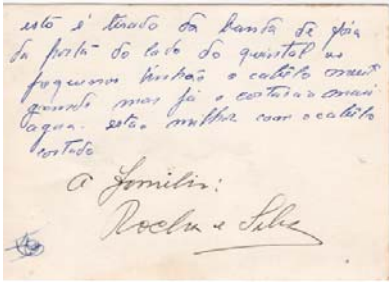 esta é tirado da banda de fóra
da porta do lado do quintal os
pequenos tinhão o cabelo muit
grande mas já o cortarão mais
agora estão milhor com o cabelo
cortado
A Familia:
Rocha e Silva